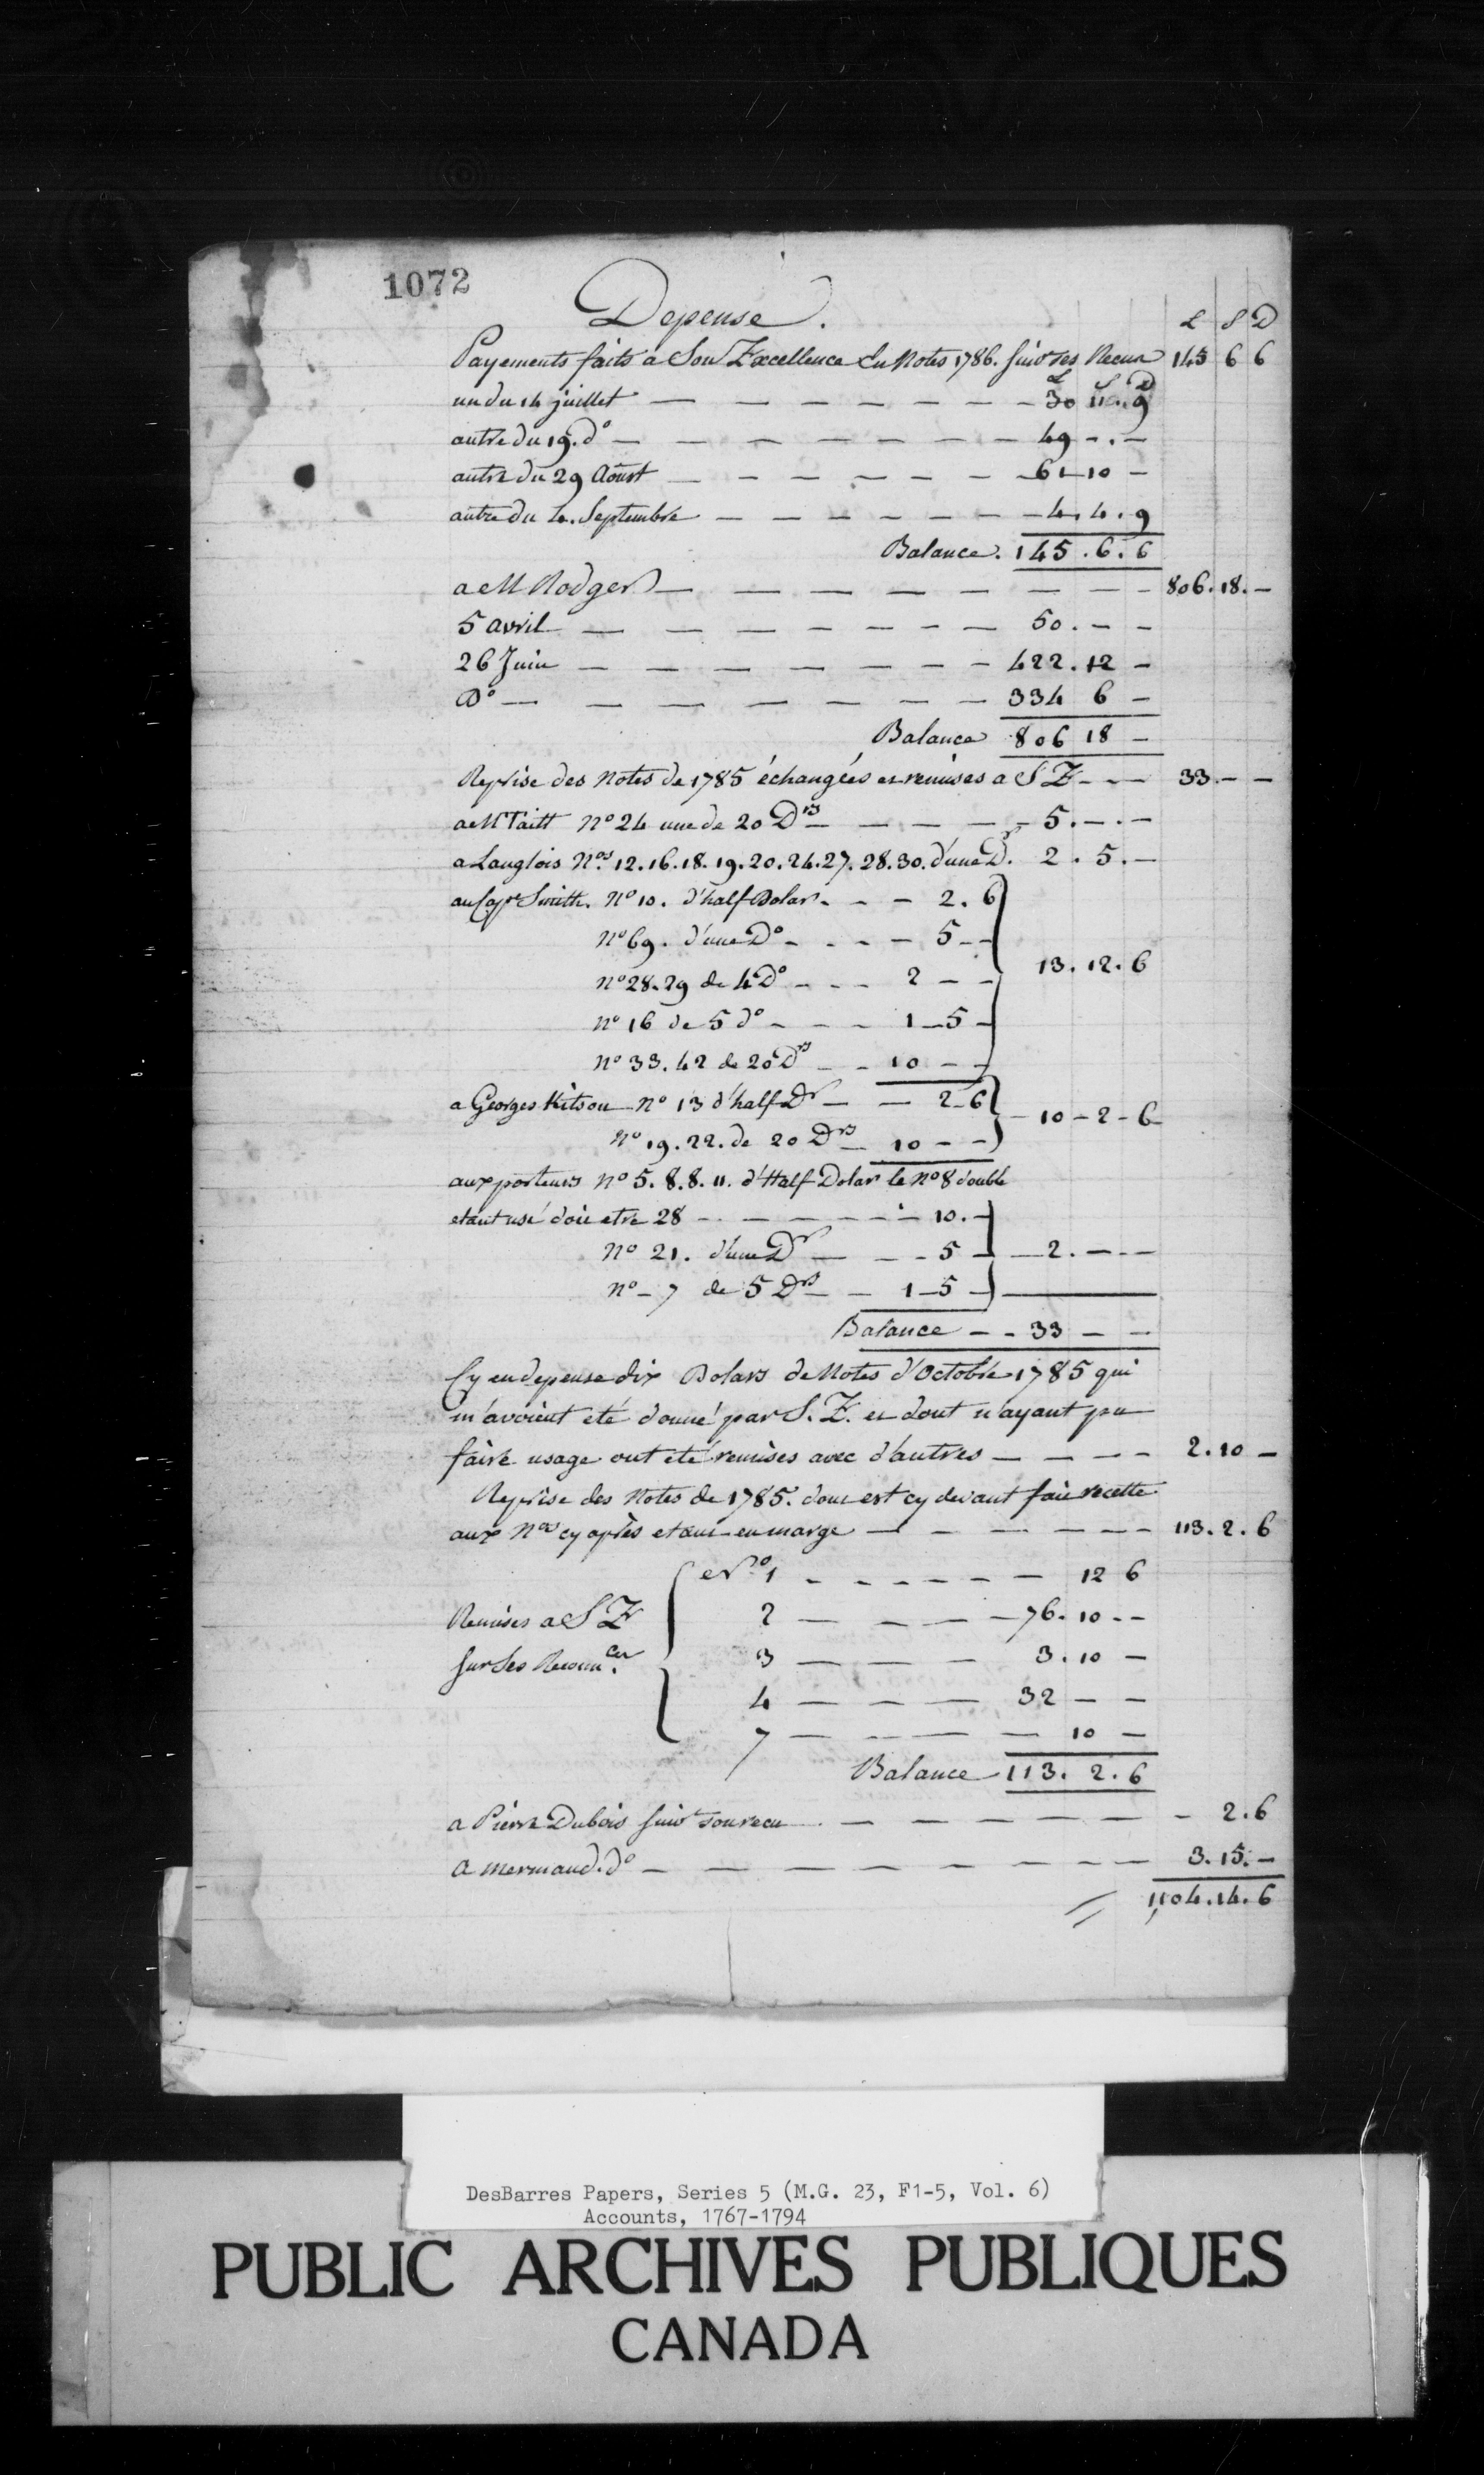 1072
Depense.
L S D
Payements faits a Son Excellence En Notes 1786. suivt ses Recus 145 6 6
L S D
un du 14 juillet — 30 11. 9
autre du 19. do — 49 - . -
autre du 29 Aoust — 61 - 10 -
autre du 4. Septembre — 4. 4. 9
Balance. 145. 6. 6
a M Rodgers — 806. 18. -
5 avril — 50. - -
26 Juin — 422. 12 -
Do — 334 6 -
Balance 806 18 -
Reprise des Notes de 1785 échangées et remises a S E - - - 33 - -
a M Taitt No 24 une de 20 Drs — 5. - . -
a Langlois Nos 12. 16. 18. 19. 20. 24. 27. 28. 30. d'une Dr. 2. 5. -
au Capt Smith. No 10. d'half Dolar - - - 2. 6
No 69. d'une Do - - - - 5 - -
13. 12. 6
No 28. 29 de 4 Do - - - 2 - -
No 16 de 5 do - - - 1 - 5 -
No 33. 42 de 20 Drs - - 10 - -
a Georges Kitson No 13 d'half Dr — - 2 - 6
- 10 - 2 - 6
No 19. 22. de 20 Drs - 10 - -
aux porteurs No 5. 8. 8. 11. d'Half Dolar le No 8 double
etant usé doit etre 28 - - - - - 10. -
No 21. d'une Dr — - - 5 - — 2. - . -
No - 7 de 5 Drs - - 1 - 5 -
Balance - - 33 - -
Cy en depense dix Dolars de Notes d'Octobre 1785 qui
m'avoient eté donné par S. E. et dont n'ayant pu
faire usage ont eté remises avec d'autres — 2. 10 -
Reprise des Notes de 1785. dont est cy devant fait recette
aux Nos cy après etant en marge — 113. 2. 6
No 1 - - - - - - 12 6
Remises a S E 2 — 76. 10 - -
sur ses Reconnces. 3 — 3. 10 -
4 — 32 - -
7 — 10 -
Balance 113. 2. 6
a Pierre Dubois suivt son recu — - 2. 6
a mermaud. do — 3. 15. -
1,104. 14. 6
DesBarres Papers, Series 5 (M.G. 23, F1-5, Vol. 6)
Accounts, 1767-1794
PUBLIC ARCHIVES PUBLIQUES
CANADA